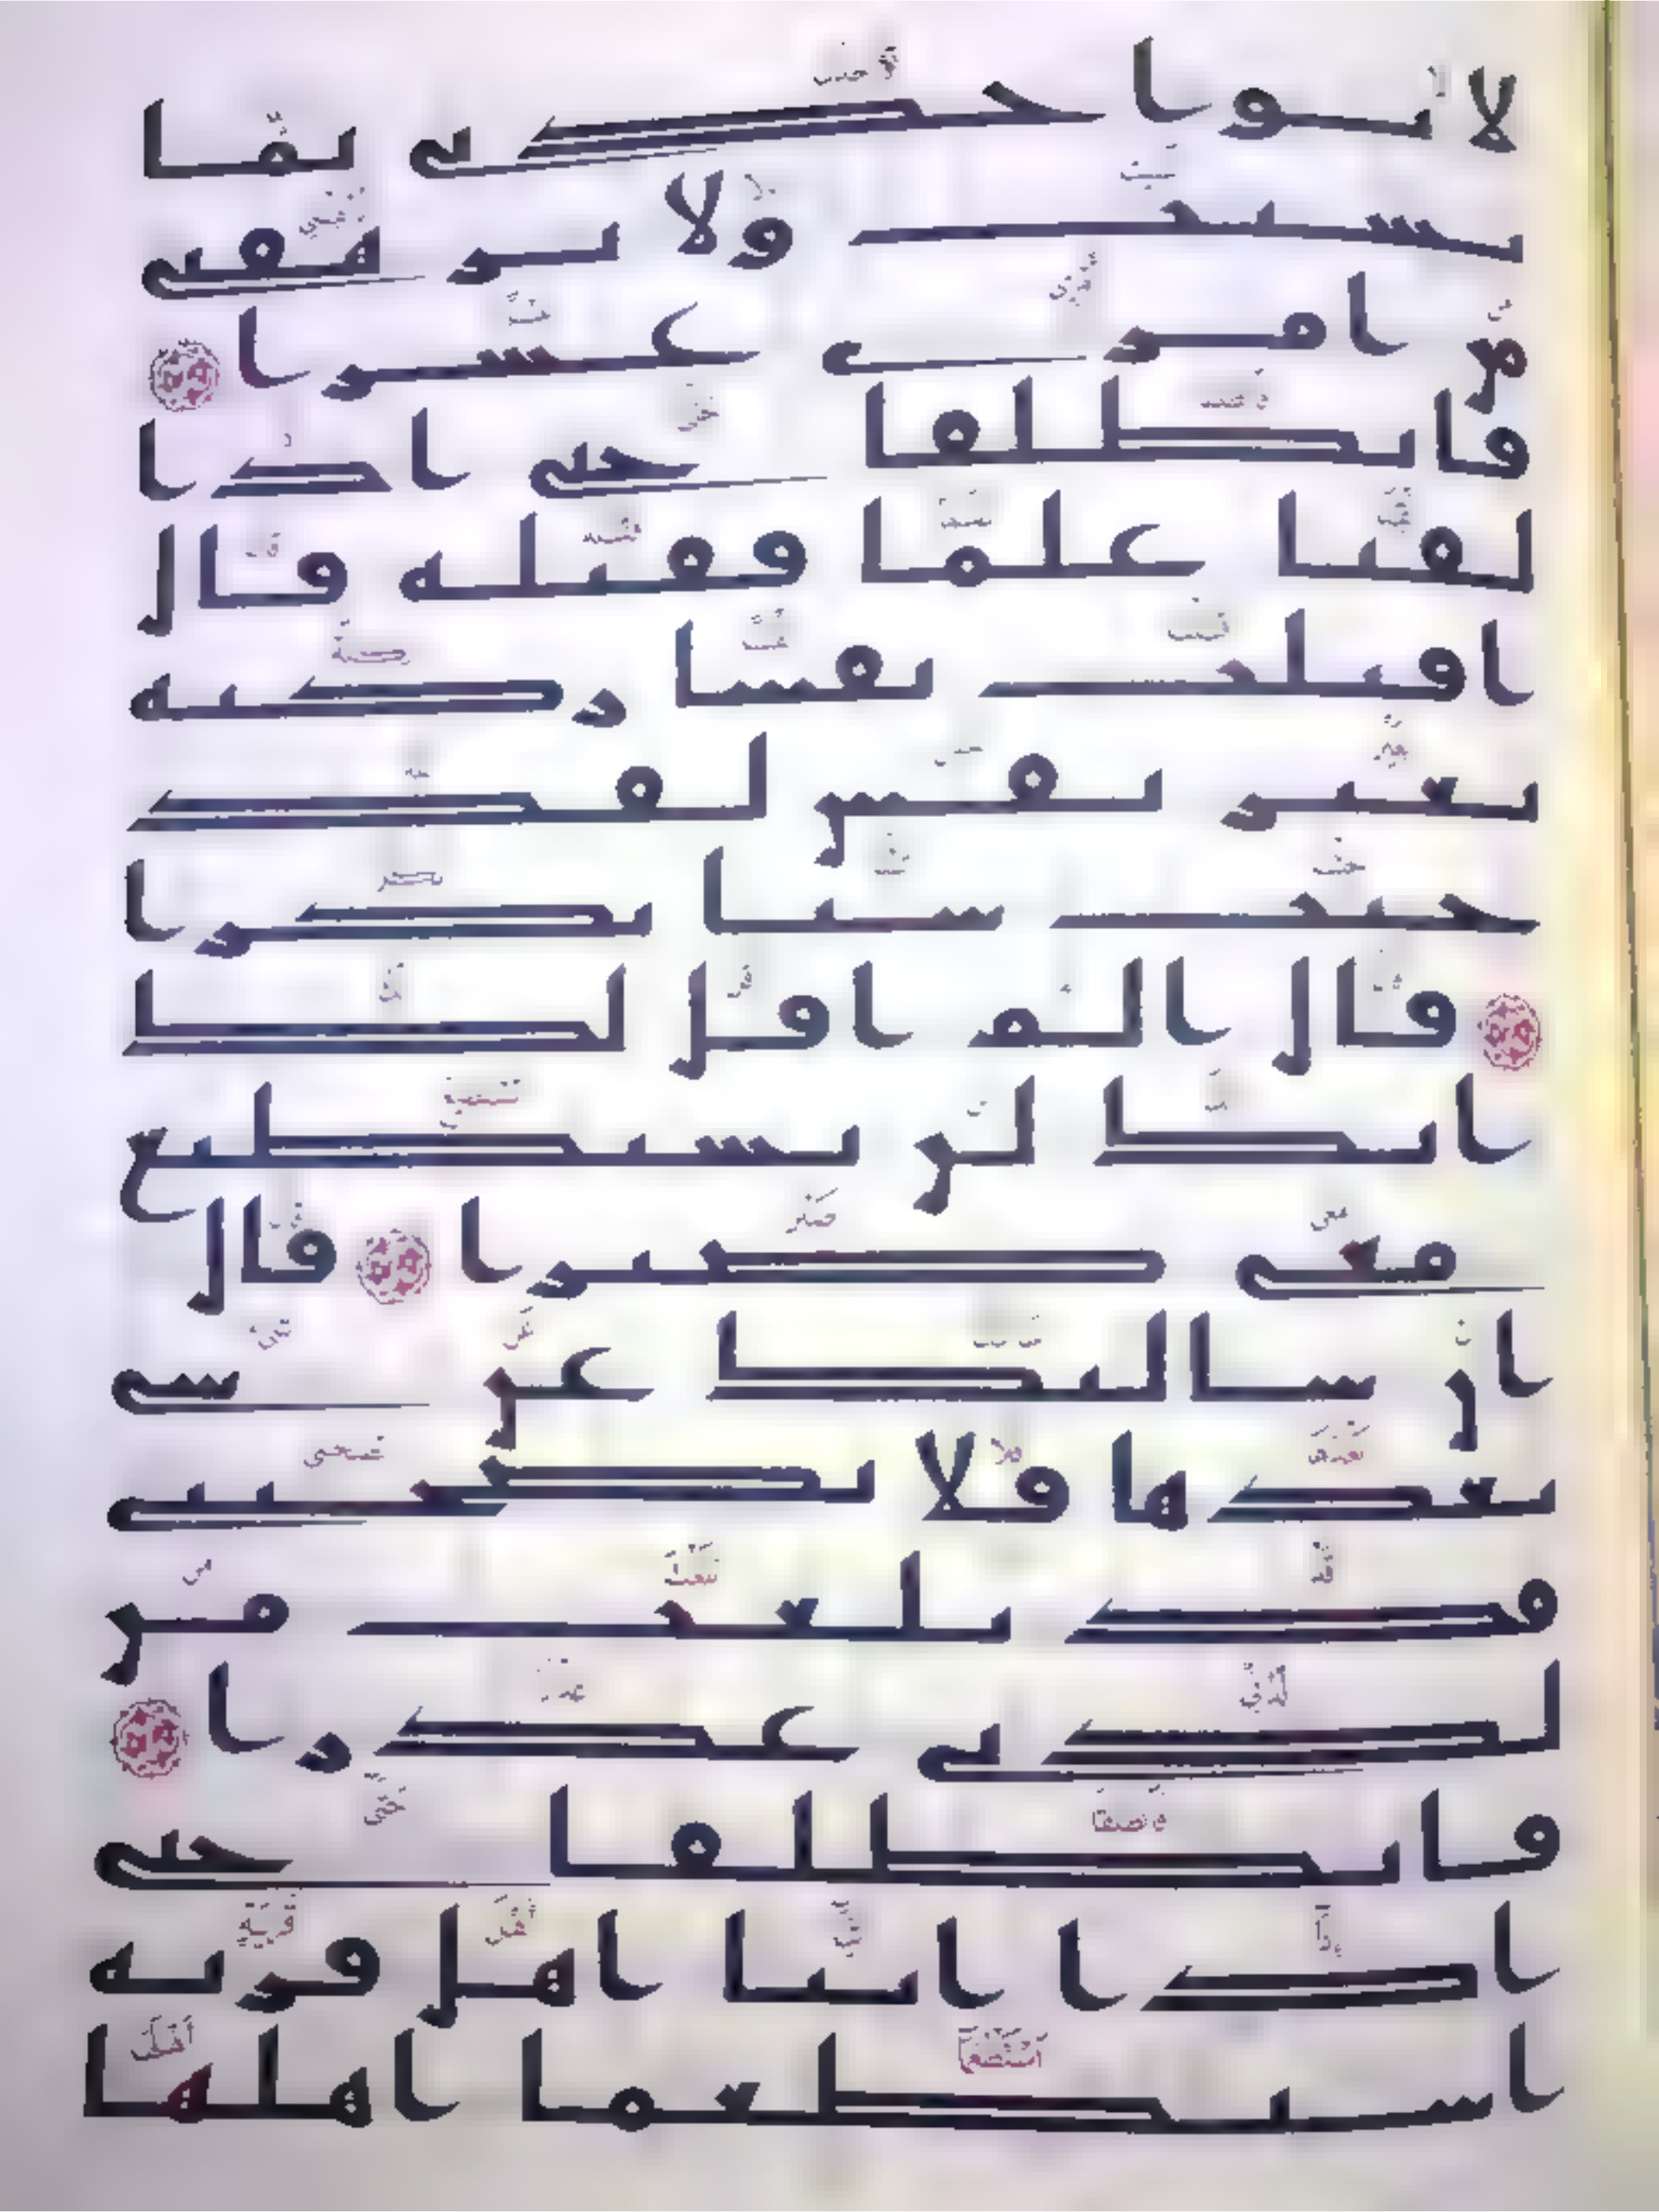 لا تواخذني بما
نسيت ولا ترهقني
من امري عسرا
فانطلقا حتى اذا
لقيا غلما فقتله قال
اقتلت نفسا زكية
بغير نفس لقد
جيت شيا نكرا
قال الم اقل لك
انك لن تستطيع
معي صبرا قال
ان سالتك عن شي
بعدها فلا تصحبني
قد بلغت من
لدني عذرا
فانطلقا حتى
اذا اتيا اهل قرية
استطعما اهلها